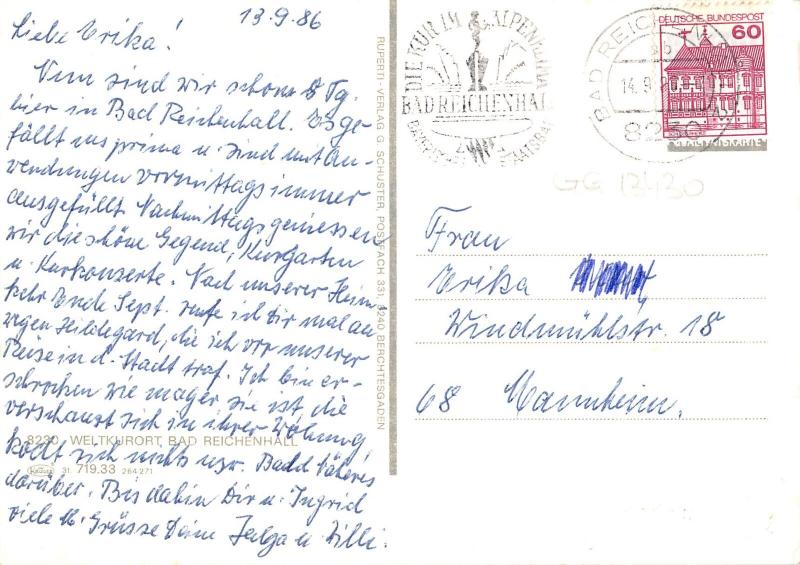 13.9.86
Liebe Erika!
Nun sind wir schon 8 Tg.
hier in Bad Reichenhall. Es ge-
fällt uns prima u. sind mit An-
wendungen vormittags immer
ausgefüllt. Nachmittags geniessen
wir die schöne Gegend, Kurgarten
u. Kurkonzerte. Nach unserer Heim-
kehr Ende Sept. rufe ich Dir mal an
wegen Hildegard, die ich vor unserer
Reise in d. Stadt traf. Ich bin er-
schrocken wie mager sie ist, die
verschanzt sich in ihrer Wohnung
kocht sich nichts usw. Bald Näheres
darüber. Bis dahin Dir u. Ingrid
viele lb. Grüsse Deine Helga u. Willi.
8230 WELTKURORT BAD REICHENHALL
31. 719.33 264 271
RUPERTI-VERLAG G. SCHUSTER, POSTFACH 331, 8240 BERCHTESGADEN
DIE KUR IM ALPENKLIMA
BAD REICHENHALL
STAATSBAD
BAD REICHENHALL
14.9.86
8230
DEUTSCHE BUNDESPOST
60
QUALITÄTSKARTE
GG 13430
Frau
Erika
Windmühlstr. 18
68 Mannheim.